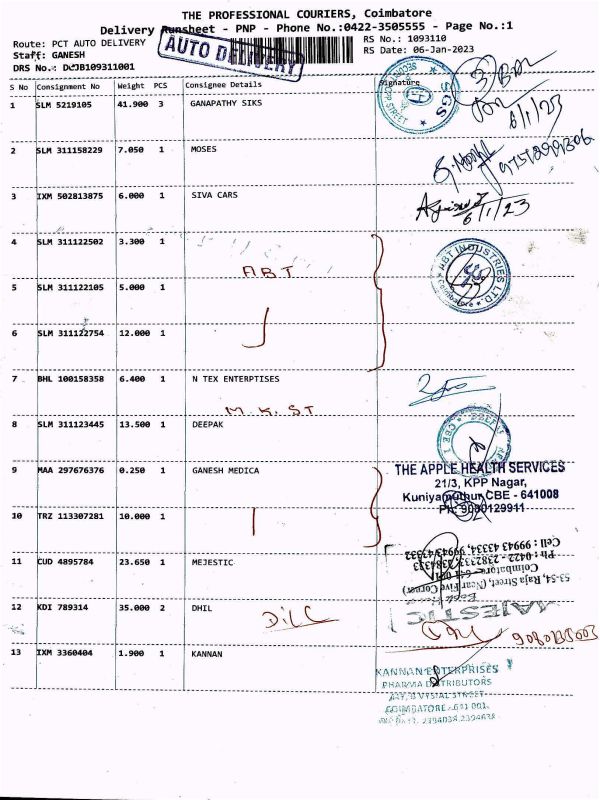 THE PROFESSIONAL COURIERS, Coimbatore
Delivery Runsheet - PNP - Phone No.:0422-3505555 - Page No.:1
Route: PCT AUTO DELIVERY
RS No.: 1093110
Staff: GANESH
RS Date: 06-Jan-2023
AUTO DELIVERY
S No Consignment No Weight PCS Consignee Details Signature
SGS
1 SLM 5219105 41.900 3 GANAPATHY SIKS
6/1/23
2 SLM 311158229 7.050 1 MOSES
3 IXM 502813875 6.000 1 SIVA CARS
6/1/23
4 SLM 311122502 3.300 1
ABT
ABT INDUSTRIES LTD.
Coimbatore
5 SLM 311122105 5.000 1
6 SLM 311122754 12.000 1
7 BHL 100158358 6.400 1 N TEX ENTERPTISES
M.K.ST
8 SLM 311123445 13.500 1 DEEPAK
9 MAA 297676376 0.250 1 GANESH MEDICA
THE APPLE HEALTH SERVICES
21/3, KPP Nagar,
Kuniyamuthur,CBE - 641008
Ph: 9080129911
10 TRZ 113307281 10.000 1
11 CUD 4895784 23.650 1 MEJESTIC
Cell : 99943 43334, 99943 43332
Ph : 0422 - 2382333, 2384333
53-54, Raja Street, (Near Five Corner)
MAJESTIC
12 KDI 789314 35.000 2 DHIL
13 IXM 3360404 1.900 1 KANNAN
KANNAN ENTERPRISES
PHARMA DISTRIBUTORS
COIMBATORE - 641 001.